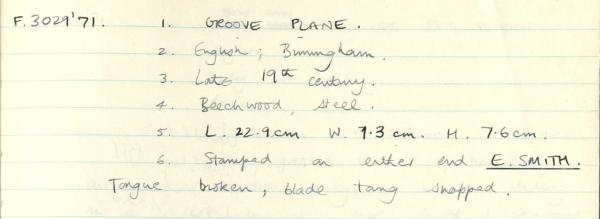 F.3029'71. 1. GROOVE PLANE.
2. English; Birmingham.
3. Late 19th century.
4. Beechwood, steel.
5. L. 22.9cm W. 9.3cm. H. 7.6cm.
6. Stamped on either end E. SMITH.
Tongue broken, blade tang snapped.